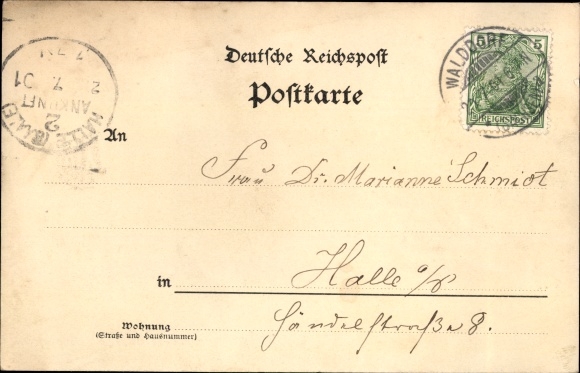 Deutsche Reichspost
Postkarte
5 5
REICHSPOST
WALDDORF
HALLE (SAALE)
2
ANKUNFT
2 7 01
7
An
Frau Dr. Marianne Schmidt
in Halle a/S
Händelstraße 8.
Wohnung
(Straße und Hausnummer)